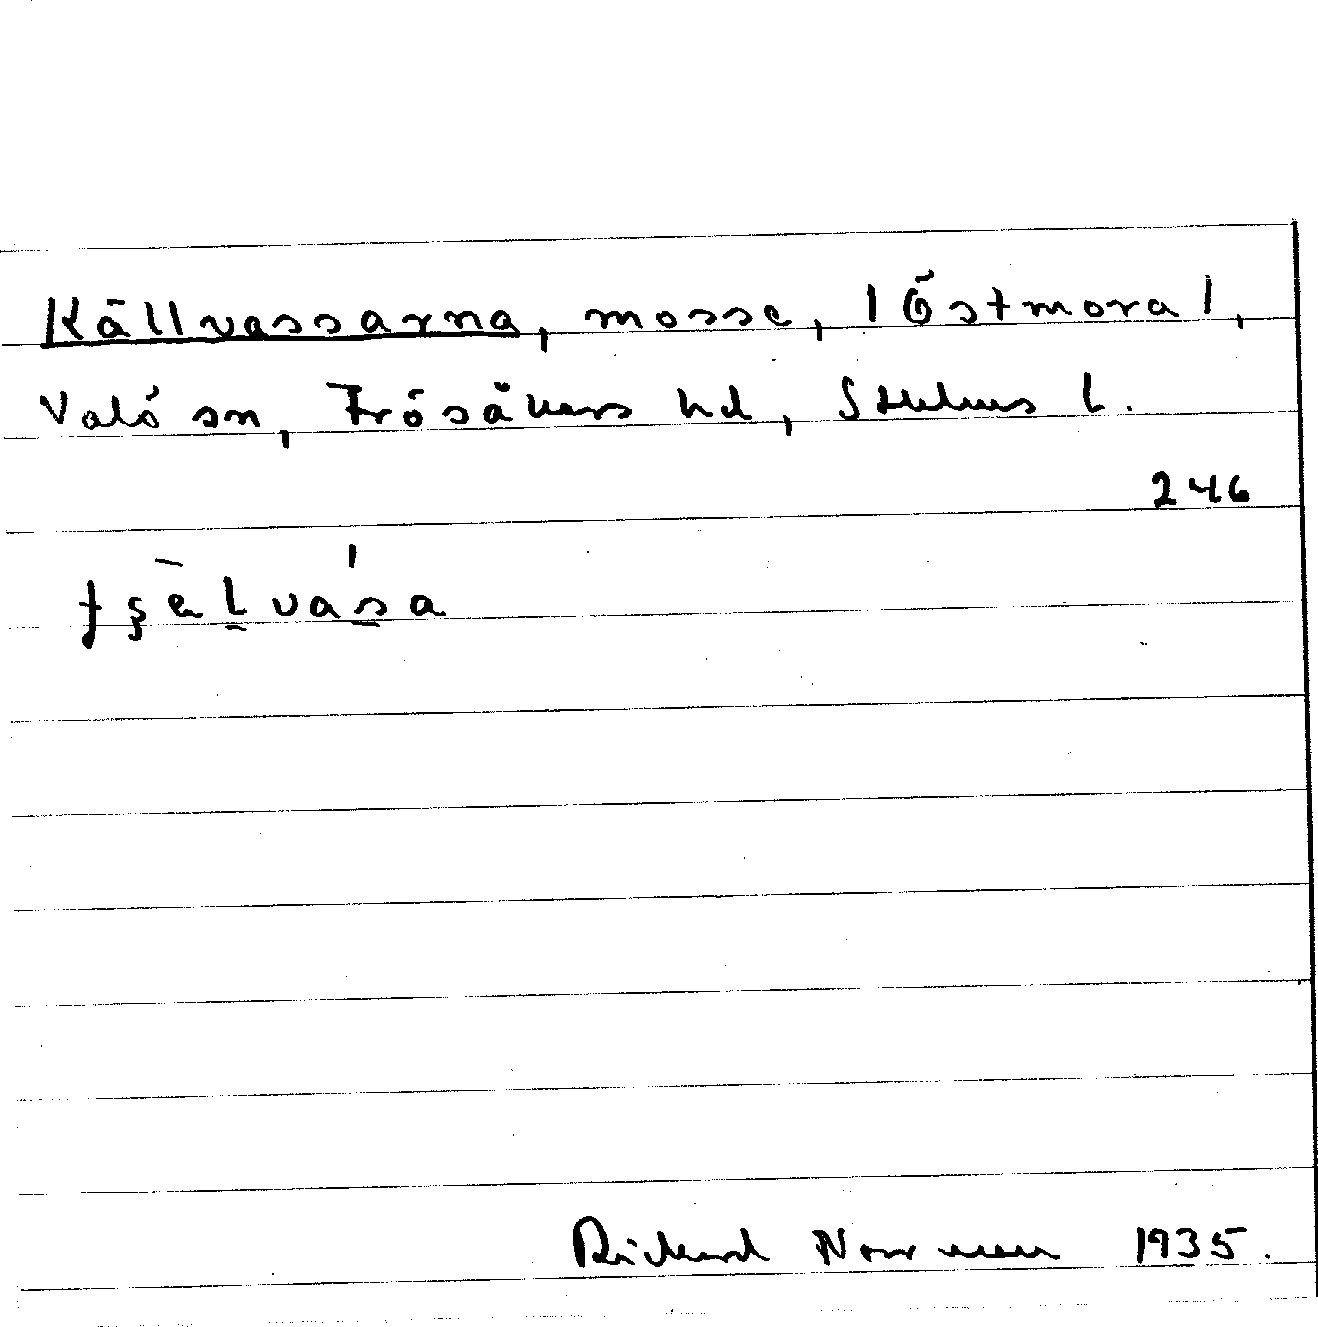 Källvassarna, mosse, | Östmora |,
Valö sn, Frösåkers hd, Sthlms l.
246
tʂèl̠vás̠a
Richard Norrman 1935.